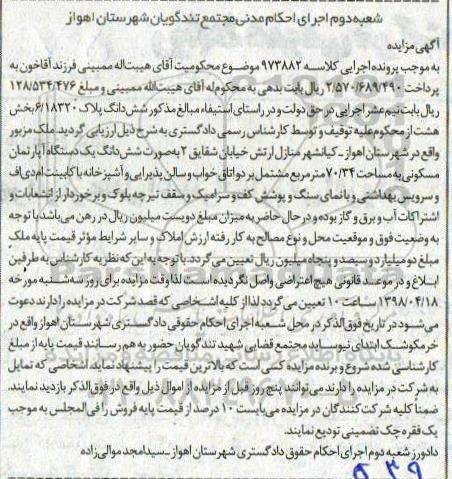 شعبه دوم اجرای احکام مدنی مجتمع تندگویان شهرستان اهواز
آگهی مزایده
به موجب پرونده اجرایی کلاسه ۹۷۳۸۸۲ موضوع محکومیت آقای هیبت‌اله ممبینی فرزند آقاخون به
پرداخت ۲/۵۷۰/۶۸۹/۴۹۰ ریال بابت بدهی به محکوم‌له آقای هیبت‌الله ممبینی و مبلغ ۱۲۸/۵۳۴/۴۷۶
ریال بابت نیم عشر اجرایی در حق دولت و در راستای استیفاء مبالغ مذکور شش دانگ پلاک ۶/۱۸۳۲۰ بخش
هشت از محکوم علیه توقیف و توسط کارشناس رسمی دادگستری به شرح ذیل ارزیابی گردید. ملک مزبور
واقع در شهرستان اهواز ـ کیانشهر منازل ارتش خیابان شقایق ۲ به صورت شش دانگ یک دستگاه آپارتمان
مسکونی به مساحت ۷۰/۳۴ مترمربع مشتمل بر دو اتاق خواب و سالن پذیرایی و آشپزخانه با کابینت ام دی اف
و سرویس بهداشتی و با نمای سنگ و پوشش کف و سرامیک و سقف تیرچه بلوک و برخوردار از انشعابات و
اشتراکات آب و برق و گاز بوده و در حال حاضر به میزان مبلغ دویست میلیون ریال در رهن می‌باشد با توجه
به وضعیت فوق و موقعیت محل و نوع مصالح به کار رفته ارزش املاک و سایر شرایط مؤثر قیمت پایه ملک
مبلغ دو میلیارد و سیصد و پنجاه میلیون ریال تعیین می‌گردد. با توجه به این که نظریه کارشناس به طرفین
ابلاغ و در موعد قانونی هیچ اعتراضی واصل نگردیده است لذا وقت مزایده برای روز سه شنبه مورخه
۱۳۹۸/۰۴/۱۸ ساعت ۱۰ تعیین می‌گردد لذا از کلیه اشخاصی که قصد شرکت در مزایده را دارند دعوت
می‌شود در تاریخ فوق‌الذکر در محل شعبه اجرای احکام حقوقی دادگستری شهرستان اهواز واقع در
خرمکوشک ابتدای نیوساید مجتمع قضایی شهید تندگویان حضور به هم رسانند قیمت پایه از مبلغ
کارشناسی شده شروع و برنده مزایده کسی است که بالاترین قیمت را پیشنهاد نماید اشخاصی که تمایل
به شرکت در مزایده را دارند می‌توانند پنج روز قبل از مزایده از اموال ذیل واقع در فوق‌الذکر بازدید نمایند.
ضمناً کلیه شرکت کنندگان در مزایده می‌بایست ۱۰ درصد از قیمت پایه فروش را فی‌المجلس به موجب
یک فقره چک تضمینی تودیع نمایند.
دادورز شعبه دوم اجرای احکام حقوق دادگستری شهرستان اهواز ـ سیدامجد موالی‌زاده